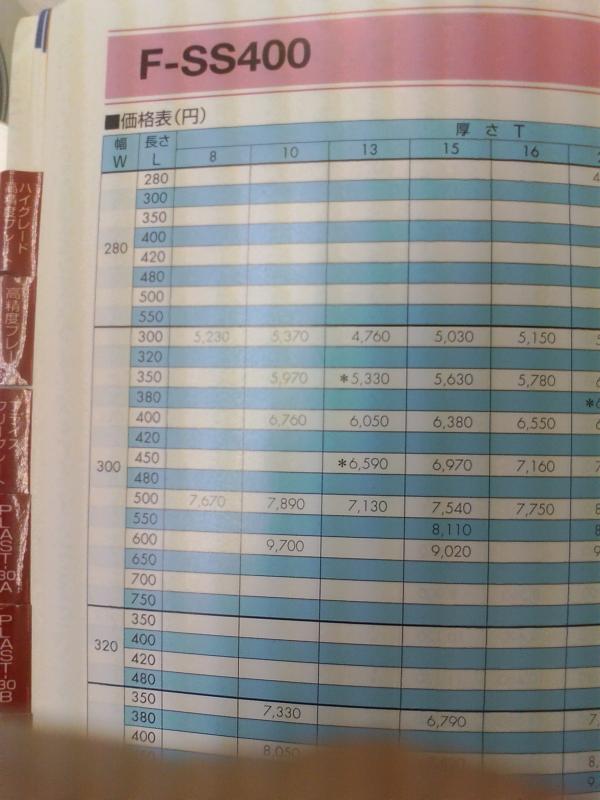 F-SS400
■価格表(円)
幅 W 長さ L 厚さ T
8 10 13 15 16
280
280
300
350
400
420
480
500
550
300
300 5,230 5,370 4,760 5,030 5,150
320
350 5,970 *5,330 5,630 5,780
380
400 6,760 6,050 6,380 6,550
420
450 *6,590 6,970 7,160
480
500 7,670 7,890 7,130 7,540 7,750
550 8,110
600 9,700 9,020
650
700
750
320
350
400
420
480
350
380 7,330 6,790
400
8,050
ハイグレード
高精度プレー
高精度プレー
PLAST-30
A
PLAST-30
B